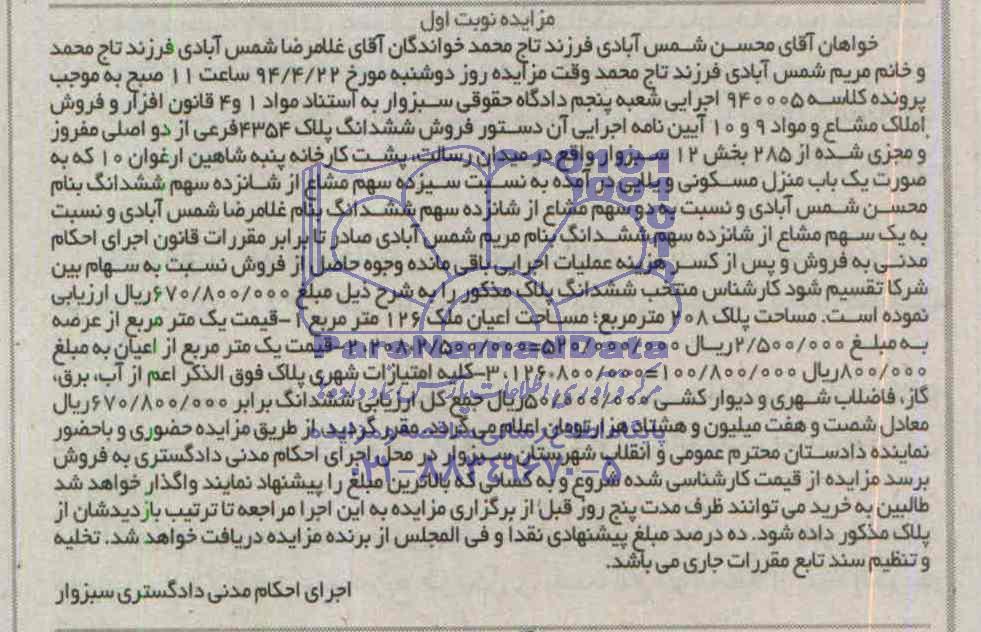 مزایده نوبت اول
خواهان آقای محسن شمس آبادی فرزند تاج محمد خواندگان آقای غلامرضا شمس آبادی فرزند تاج محمد
و خانم مریم شمس آبادی فرزند تاج محمد وقت مزایده روز دوشنبه مورخ ۹۴/۴/۲۲ ساعت ۱۱ صبح به موجب
پرونده کلاسه ۹۴۰۰۰۵ اجرایی شعبه پنجم دادگاه حقوقی سبزوار به استناد مواد ۱ و۴ قانون افراز و فروش
املاک مشاع و مواد ۹ و ۱۰ آیین نامه اجرایی آن دستور فروش ششدانگ پلاک ۴۳۵۴فرعی از دو اصلی مفروز
و مجزی شده از ۲۸۵ بخش ۱۲ سبزوار واقع در میدان رسالت، پشت کارخانه پنبه شاهین ارغوان ۱۰ که به
صورت یک باب منزل مسکونی ویلایی درآمده به نسبت سیزده سهم مشاع از شانزده سهم ششدانگ بنام
محسن شمس آبادی و نسبت به دو سهم مشاع از شانزده سهم ششدانگ بنام غلامرضا شمس آبادی و نسبت
به یک سهم مشاع از شانزده سهم ششدانگ بنام مریم شمس آبادی صادر تا برابر مقررات قانون اجرای احکام
مدنی به فروش و پس از کسر هزینه عملیات اجرایی باقی مانده وجوه حاصل از فروش نسبت به سهام بین
شرکا تقسیم شود کارشناس منتخب ششدانگ پلاک مذکور را به شرح ذیل مبلغ ۶۷۰/۸۰۰/۰۰۰ریال ارزیابی
نموده است. مساحت پلاک ۲۰۸ مترمربع؛ مساحت اعیان ملک ۱۲۶ متر مربع ۱-قیمت یک متر مربع از عرصه
به مبلغ ۲/۵۰۰/۰۰۰ریال ۵۲۰/۰۰۰/۰۰۰=۲۰۸۰۲/۵۰۰/۰۰۰ ۲-قیمت یک متر مربع از اعیان به مبلغ
۸۰۰/۰۰۰ریال ۱۰۰/۸۰۰/۰۰۰=۱۲۶۰۸۰۰/۰۰۰ ۳-کلیه امتیازات شهری پلاک فوق الذکر اعم از آب، برق،
گاز، فاضلاب شهری و دیوار کشی ۵۰/۰۰۰/۰۰۰ریال جمع کل ارزیابی ششدانگ برابر ۶۷۰/۸۰۰/۰۰۰ریال
معادل شصت و هفت میلیون و هشتاد هزار تومان اعلام می گردد. مقرر گردید از طریق مزایده حضوری و باحضور
نماینده دادستان محترم عمومی و انقلاب شهرستان سبزوار در محل اجرای احکام مدنی دادگستری به فروش
برسد مزایده از قیمت کارشناسی شده شروع و به کسانی که بالاترین مبلغ را پیشنهاد نمایند واگذار خواهد شد
طالبین به خرید می توانند ظرف مدت پنج روز قبل از برگزاری مزایده به این اجرا مراجعه تا ترتیب بازدیدشان از
پلاک مذکور داده شود. ده درصد مبلغ پیشنهادی نقدا و فی المجلس از برنده مزایده دریافت خواهد شد. تخلیه
و تنظیم سند تابع مقررات جاری می باشد.
اجرای احکام مدنی دادگستری سبزوار
ParsNamadData
۰۲۱-۸۸۳۴۹۶۷۰-۵